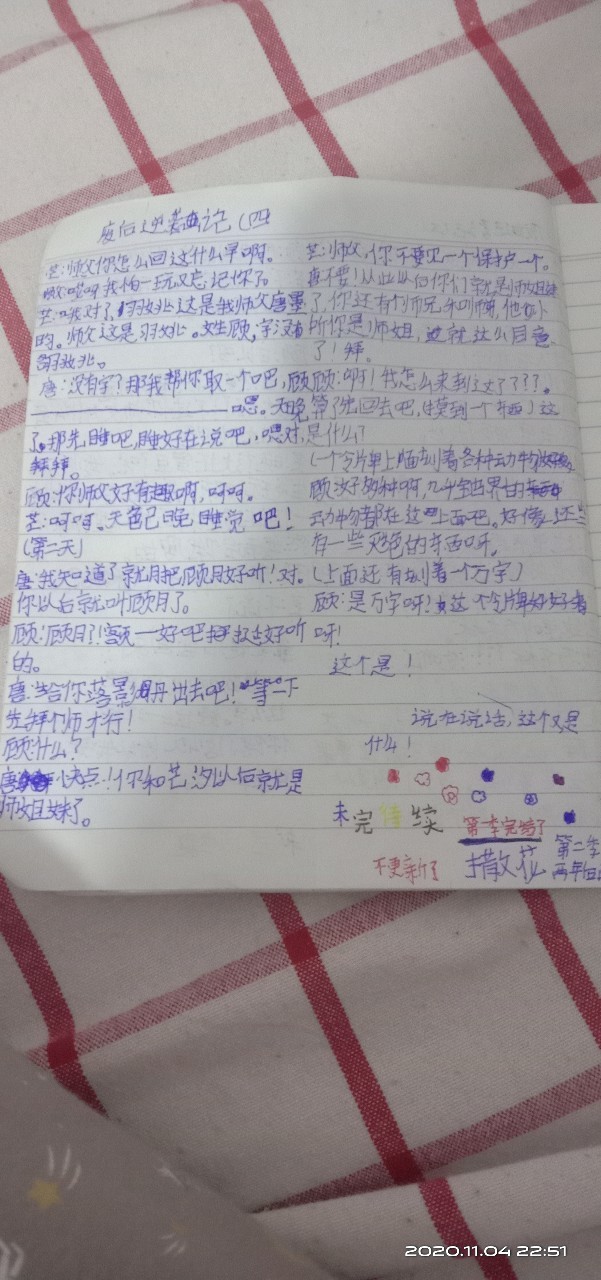 后逆袭记（四
芒:师父你怎么回这什么早啊。
我怕一玩又忘记你了。
芒:哦对了,羽姚这是我师父唐墨
的。师父这是羽姚。女生顾,字没有
唐:没有字?那我帮你取一个吧,顾
嗯。天晚
了。那先睡吧,睡好在说吧,嗯对,
拜拜。
顾:你师父好有趣啊,呵呵。
芒:呵呵。天色已晚睡觉吧!
(第二天)
唐:我知道了就月把顾月好听!对。
你以后就叫顾月了。
顾:顾月?!好吧挺好听
的。
唐:给你落影丹出去吧!等一下
先拜个师才行!
顾:什么?
唐:快点!你和芒汐以后就是
师姐妹了。
芒:师父,你不要见一个保护一个。
唐:不要!从此以后你们就是师姐妹
了,你还有个师兄和师姨,他们小
所你是师姐,就这么
了!拜。
顾:啊!我怎么来到这了???。
算了先回去吧,(摸到一个东西)这
是什么?
(一个令牌上面刻着各种动物
顾:这好多种啊,几乎全世界的
动物都在这上面吧。好像上还
有一些灭绝的东西呀。
(上面还有刻着一个万字)
顾:是万字呀!这个令牌好好看
呀!
这个是!
说在说话,这个又是
什么!
未完待续
第一季完结了
不更新了
撒花
第二季
两年后
2020.11.04 22:51